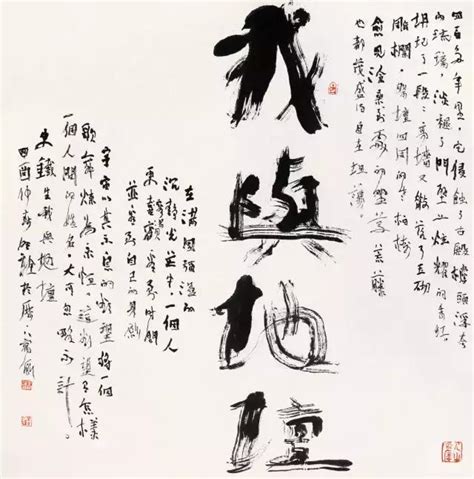 四百多年里,它侵蝕了古殿檐頭浮夸
的琉璃,淡褪了門壁上炫耀的朱紅
坍圮了一段段高墻又散落了玉砌
雕欄,祭壇四周的老柏樹
愈見滄桑到處的野草荒藤
也都茂盛得自在坦蕩。
我與地壇
在滿園彌漫的
沉靜光芒中一個人
更容易看到時間
並看到自己的身影
宇宙以其不息的欲望將一個
歌舞煉為永恒。這欲望有怎樣
一個人間的姓名,大可忽略不計。
史鐵生我與地壇